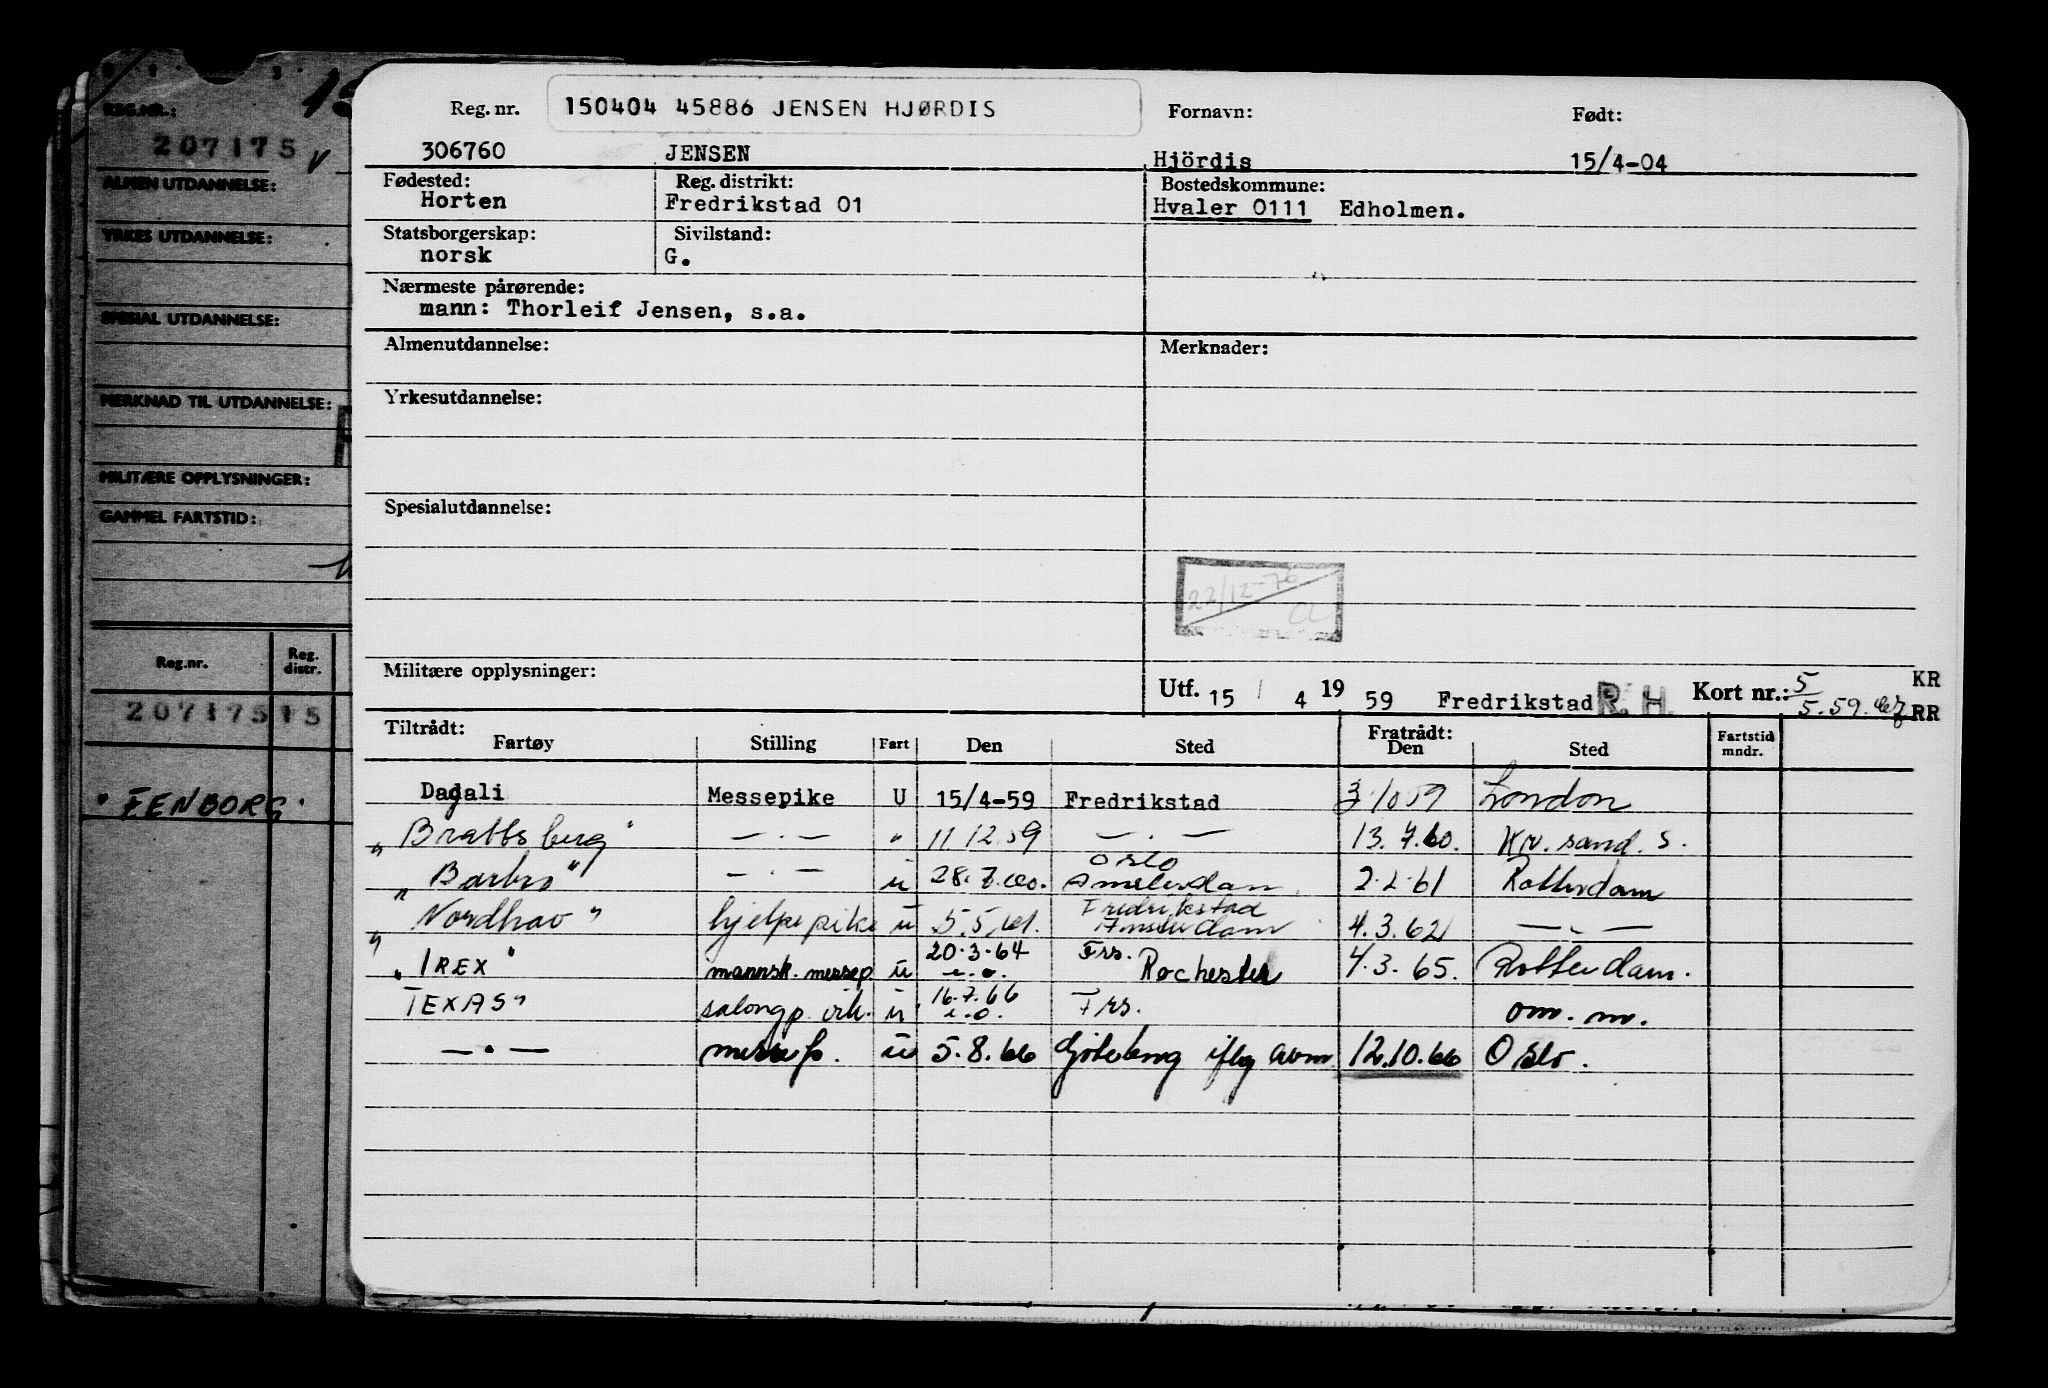 REG.NR.:
207175 V
ALMEN UTDANNELSE:
YRKES UTDANNELSE:
SPESIAL UTDANNELSE:
MERKNAD TIL UTDANNELSE:
MILITÆRE OPPLYSNINGER:
GAMMEL FARTSTID:
Reg.nr. Reg. distr.
207175 15
"FENBORG"
Reg. nr. 150404 45886 JENSEN HJØRDIS Fornavn: Født:
306760 JENSEN Hjördis 15/4-04
Fødested: Reg. distrikt: Bostedskommune:
Horten Fredrikstad 01 Hvaler 0111 Edholmen.
Statsborgerskap: Sivilstand:
norsk G.
Nærmeste pårørende:
mann: Thorleif Jensen, s.a.
Almenutdannelse: Merknader:
Yrkesutdannelse:
Spesialutdannelse:
22/12-76
CL
Militære opplysninger:
Utf. 15 / 4 19 59 Fredrikstad R. H. Kort nr.: 5/5.59. KR
RR
Tiltrådt: Fratrådt:
Fartøy Stilling Fart Den Sted Den Sted Fartstid mndr.
Dagali Messepike U 15/4-59 Fredrikstad 3/10 59 London
"Brattsberg" — . — " 11 12.59 — . — 13.7.60. Kr. sand. S.
Oslo
"Barbro" — . — u 28.7.60. Amsterdam 2.2.61 Rotterdam
Fredrikstad
"Nordhav" hjelpepike u 5.5.61. Amsterdam 4.3.62 — . —
20.3.64 Frs.
"IREX" mannsk. messep. u u.o. Rochester 4.3.65. Rotterdam.
16.7.66
TEXAS" salongp. vik. u u.o. Frs. om. m.
— . — messep. u 5.8.66 Göteborg iflg avm 12.10.66 Oslo.